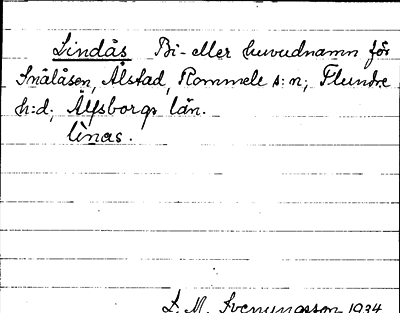 Lindås Bi- eller huvudnamn för
Snålåsen, Ålstad, Rommele s:n, Flundre
h:d, Älfsborgs län.
línas.
L. M. Svenungsson 1934